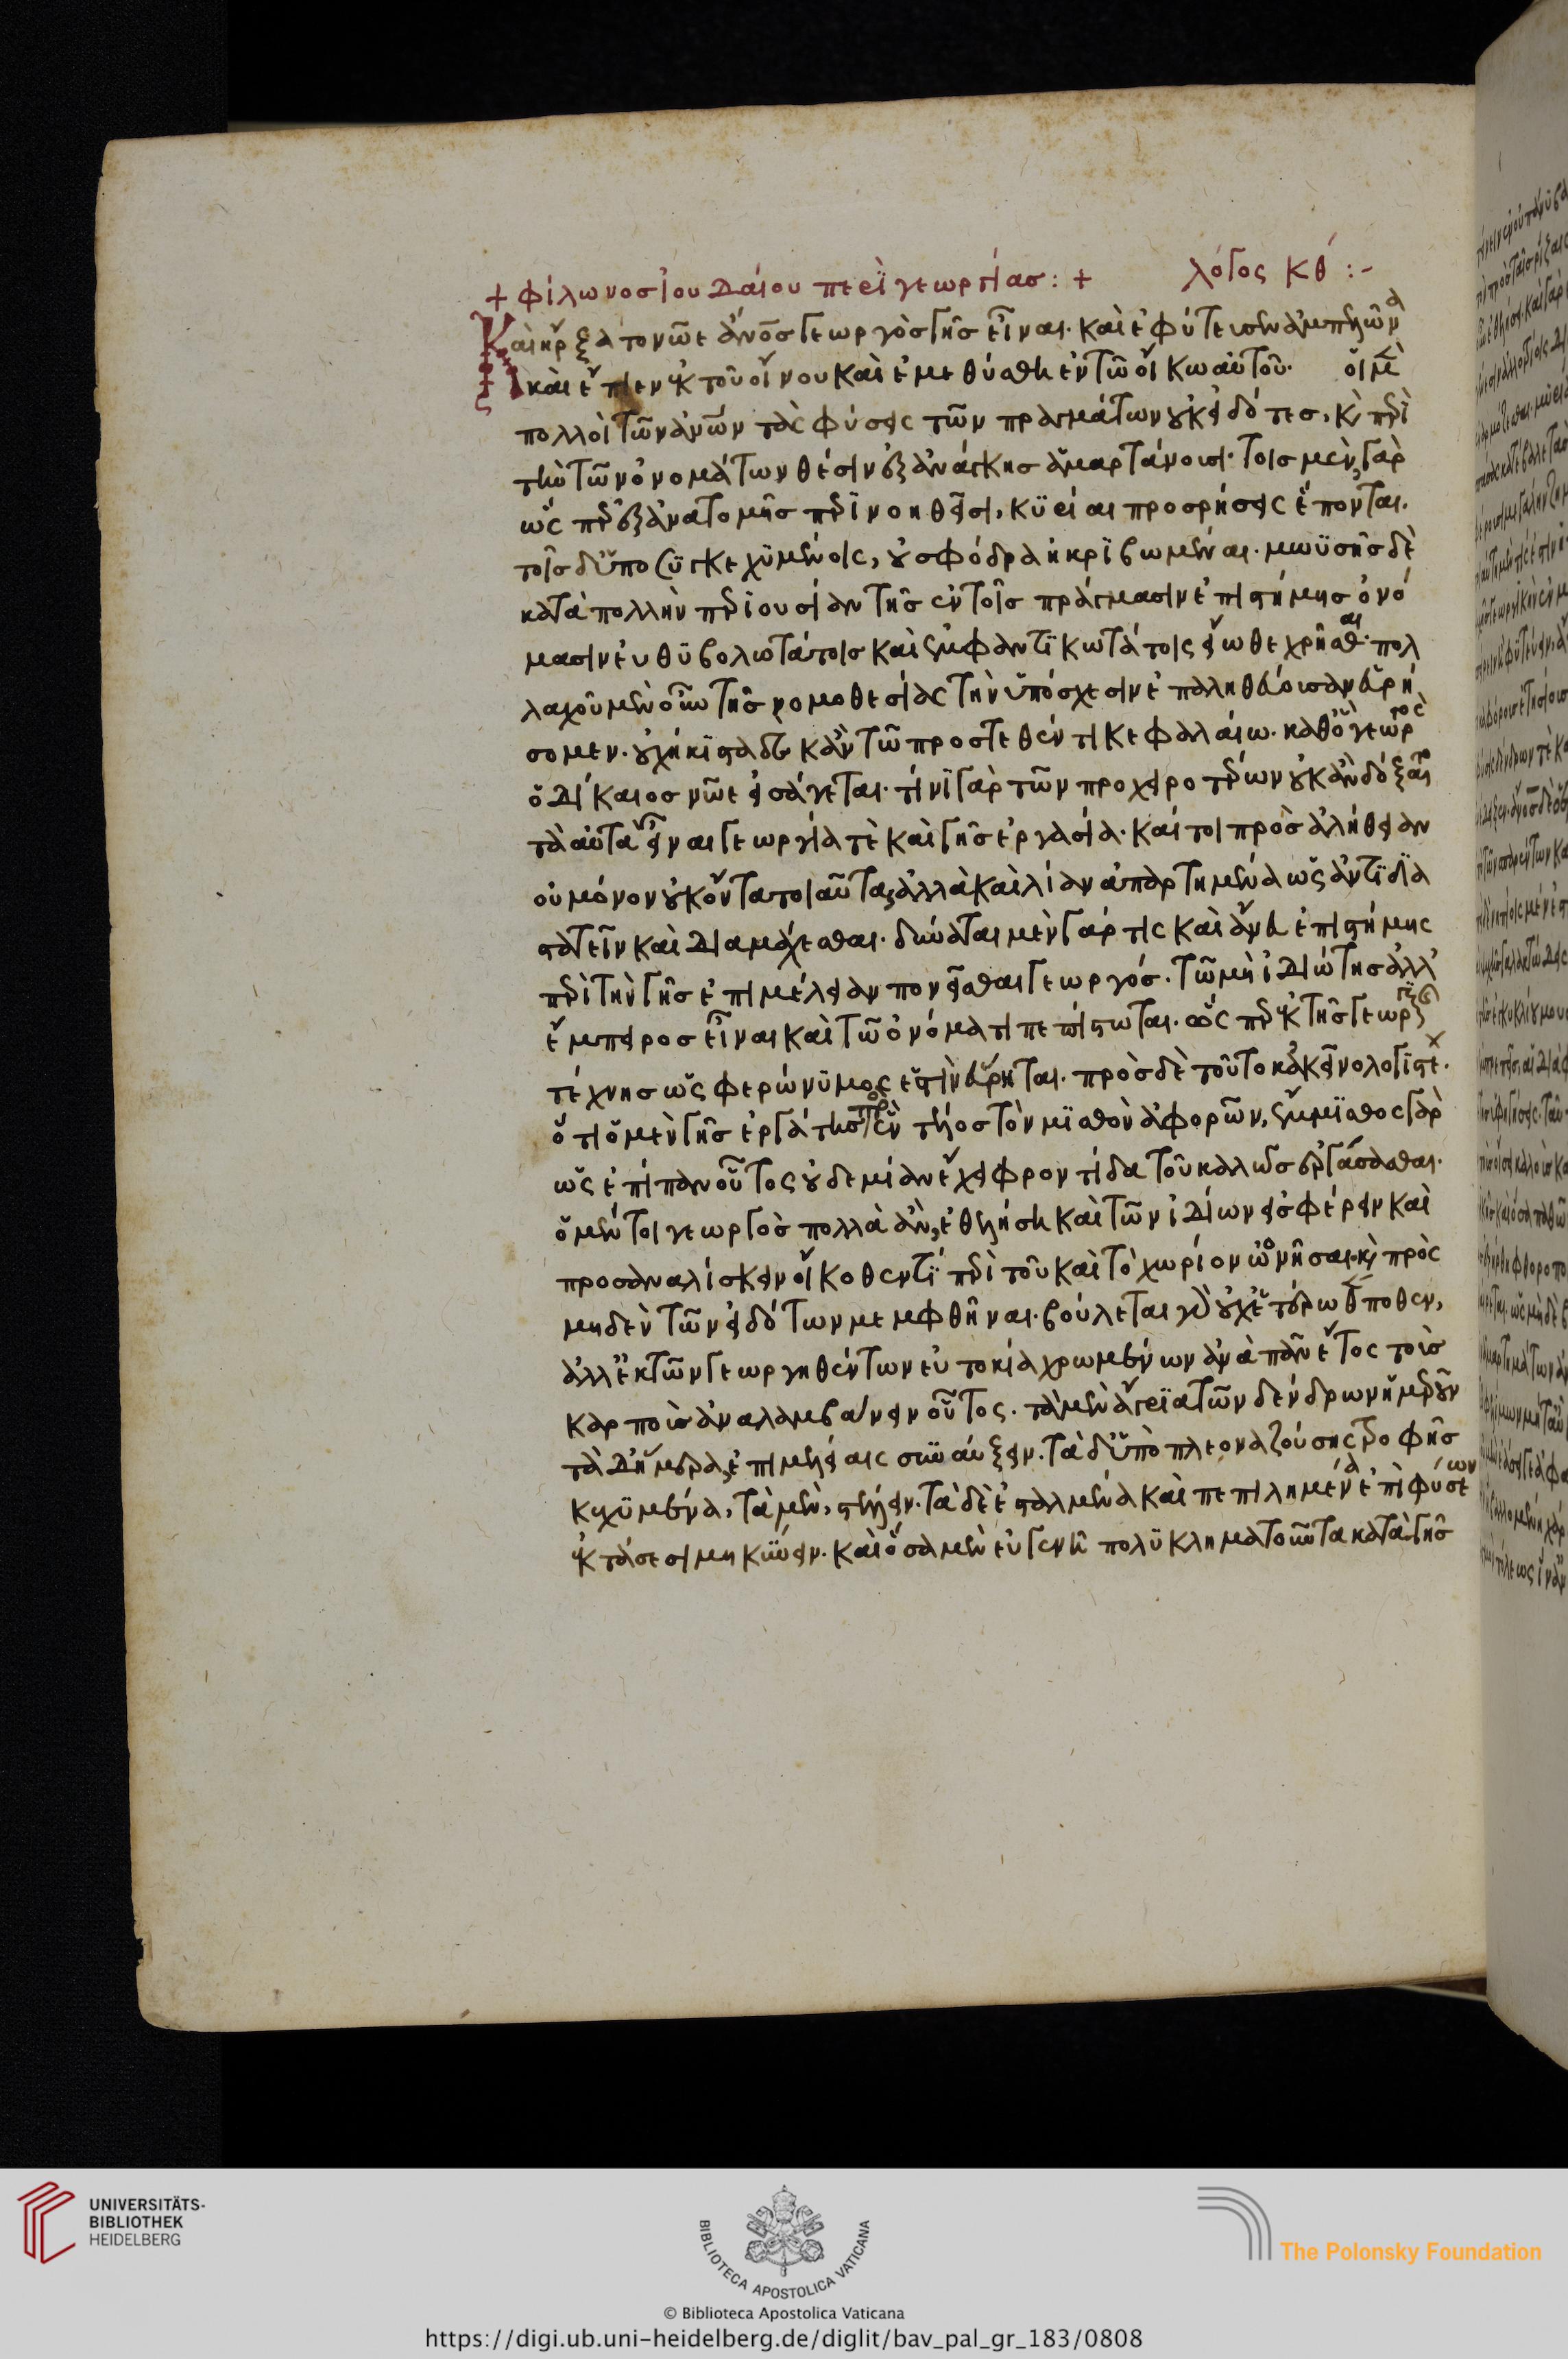 + φίλωνος ἰουδαίου περὶ γεωργίας : + λόγος κθ :-
Καὶ ἤρξατο νῶε ἄνος γεωργὸς γῆς εἶναι. καὶ ἐφύτευσεν ἀμπελῶνα
καὶ ἔπιεν ἐκ τοῦ οἴνου καὶ ἐμεθύσθη ἐν τῶ οἴκω αὐτοῦ. οἱ μὲ
πολλοὶ τῶν ἀνῶν τὰς φύσεις τῶν πραγμάτων οὐκ εἰδότες, καὶ περὶ
τὴν τῶν ὀνομάτων θέσιν ἐξ ἀνάγκης ἁμαρτάνουσι. τοῖς μὲν γὰρ
ὡς περ ἐξ ἀνατομῆς περινοηθεῖσι, κύριαι προσρήσεις ἕπονται.
τοῖς δ' ὑποσυγκεχυμένοις, οὐ σφόδρα ἠκριβωμέναι. μωϋσῆς δὲ
κατὰ πολλὴν περιουσίαν τῆς ἐν τοῖς πράγμασιν ἐπιστήμης ὀνό
μασιν εὐθυβολωτάτοις καὶ ἐμφαντικωτάτοις εἴωθε χρῆσθαι. πολ
λαχοῦ μὲν οὖν τῆς νομοθεσίας τὴν ὑπόσχεσιν ἐπαληθεύουσαν εὑρή
σομεν. οὐχ ἥκιστα δὲ κἀν τῶ προστεθέντι κεφαλαίω. καθ' ὃ γεωργὸς
ὁ δίκαιος νῶε εἰσάγεται. τίνι γὰρ τῶν προχειροτέρων οὐκ ἂν δόξαι
τὰ αὐτὰ εἶναι γεωργία τὲ καὶ γῆς ἐργασία. καίτοι πρὸς ἀλήθειαν
οὐ μόνον οὐκ ὄντα τοιαῦτα, ἀλλὰ καὶ λίαν ἀπαρτημένα ὡς ἀντιδια
στατεῖν καὶ διαμάχεσθαι. δύναται μὲν γάρ τις καὶ ἄνευ ἐπιστήμης
περὶ τὴν γῆς ἐπιμέλειαν πονεῖσθαι γεωργός. τῶ μὴ ἰδιώτης ἀλλ'
ἔμπειρος εἶναι καὶ τῶ ὀνόματι πεπίστωται. ὅς περ ἐκ τῆς γεωργικῆς
τέχνης ὡς φερώνυμος ἐστὶν εὕρηται. πρὸς δὲ τοῦτο κἀκεῖνο λογιστέ.
ὅτι ὁ μὲν γῆς ἐργάτης πρὸς ἓν τέλος τὸν μισθὸν ἀφορῶν, ἔμμισθος γὰρ
ὡς ἐπίπαν οὗτος οὐδεμίαν ἔχει φροντίδα τοῦ καλῶς ἐργάσασθαι.
ὁ μέντοι γεωργὸς πολλὰ ἂν, ἐθελήση καὶ τῶν ἰδίων εἰσφέρειν καὶ
προσαναλίσκειν οἴκοθεν τί περὶ τοῦ καὶ τὸ χωρίον ὀνῆσαι. καὶ πρὸς
μηδεν τῶν εἰδότων μεμφθῆναι. βούλεται γὰρ οὐχ ἑτέρωθέν ποθεν,
ἀλλ' ἐκ τῶν γεωργηθέντων εὐτοκία χρωμένων ἀνὰ πᾶν ἔτος τοὺς
καρποὺς ἀναλαμβάνειν οὗτος. τὰ μὲν ἄγρια τῶν δένδρων ἡμεροῦν
τὰ δ' ἥμερα, ἐπιμελείαις συναύξειν. τὰ δ' ὑπὸ πλεοναζούσης τροφῆς
κεχυμένα, τὰ μὲν, στέλλειν. τὰ δὲ ἐσταλμένα καὶ πεπιλημένα ἐπιφύσεων
ἐκτάσεσι μηκύνειν. καὶ ὅσα μὲν εὐγενῆ πολυκληματοῦντα κατὰ γῆς
UNIVERSITÄTS-
BIBLIOTHEK
HEIDELBERG
BIBLIOTECA APOSTOLICA VATICANA
The Polonsky Foundation
© Biblioteca Apostolica Vaticana
https://digi.ub.uni-heidelberg.de/diglit/bav_pal_gr_183/0808